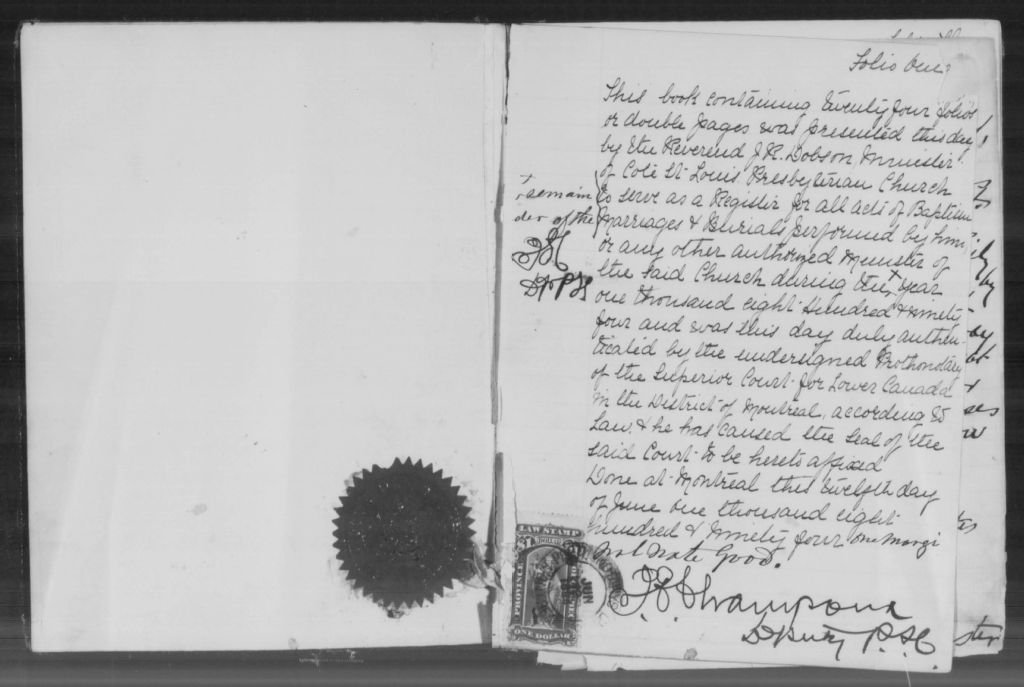 Folio One
This book containing twenty four folios
or double pages was presented this day
by the Reverend J. R. Dobson Minister
of Coté St Louis Presbyterian Church
to serve as a Register for all acts of Baptism
Marriages & Burials performed by him
or any other authorized Minister of
the said Church during the + year
one thousand eight hundred & ninety
four and was this day duly authen-
ticated by the undersigned Prothonotary
of the Superior Court for Lower Canada
in the District of Montreal, according to
Law, & he has caused the seal of the
said Court to be hereto affixed
Done at Montreal this twelfth day
of June one thousand eight
hundred & ninety four one margi
nal note good.
Deputy P.S.C.
+
remain
der of the
LAW STAMP
$1 DOLLAR
PROVINCE
ONE DOLLAR
JUN